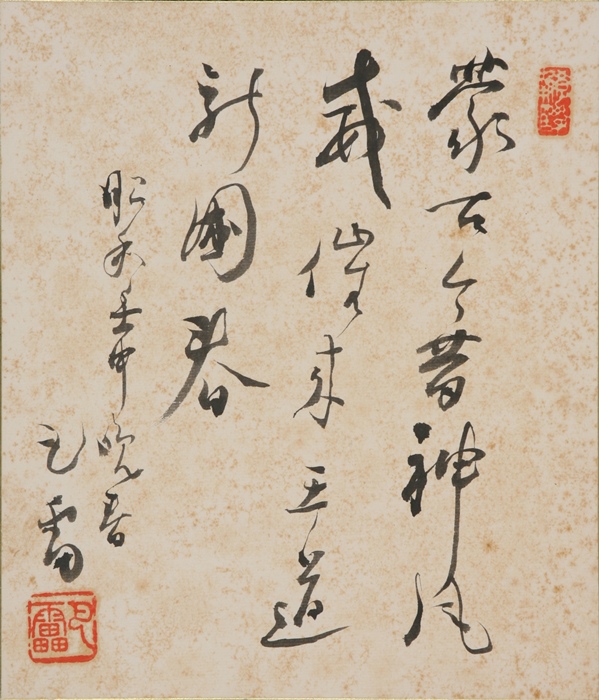 蒙古今昔神風
威催来王道
新國春
昭和壬申晩春
雷